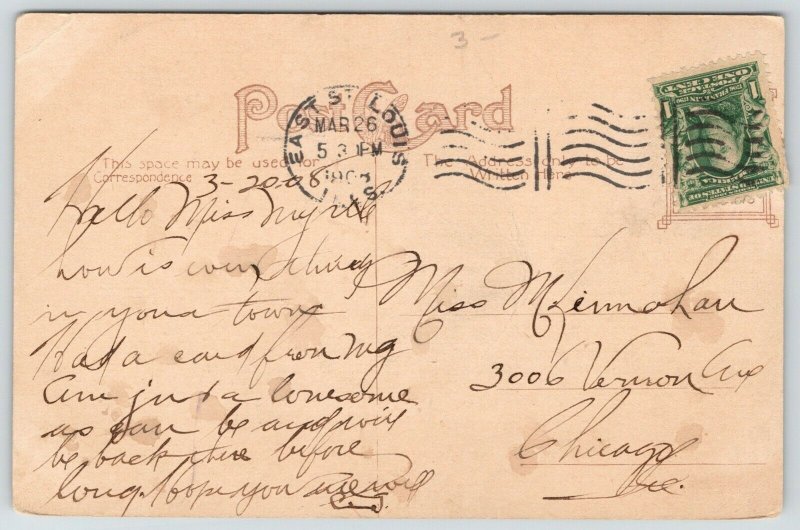 3-
Post Card
EAST ST. LOUIS
MAR 26
5 30 PM
ILLS
ONE CENT
This space may be used for
Correspondence
The Address only to be
Written Here
3-20-08
Hello Miss Myrtle
how is everything
in your town
Had a card from
Am just a lonesome
as can be and will
be back there before
long. hope you are well
C. J.
Miss
3006 Vernon Ave
Chicago
Ill.